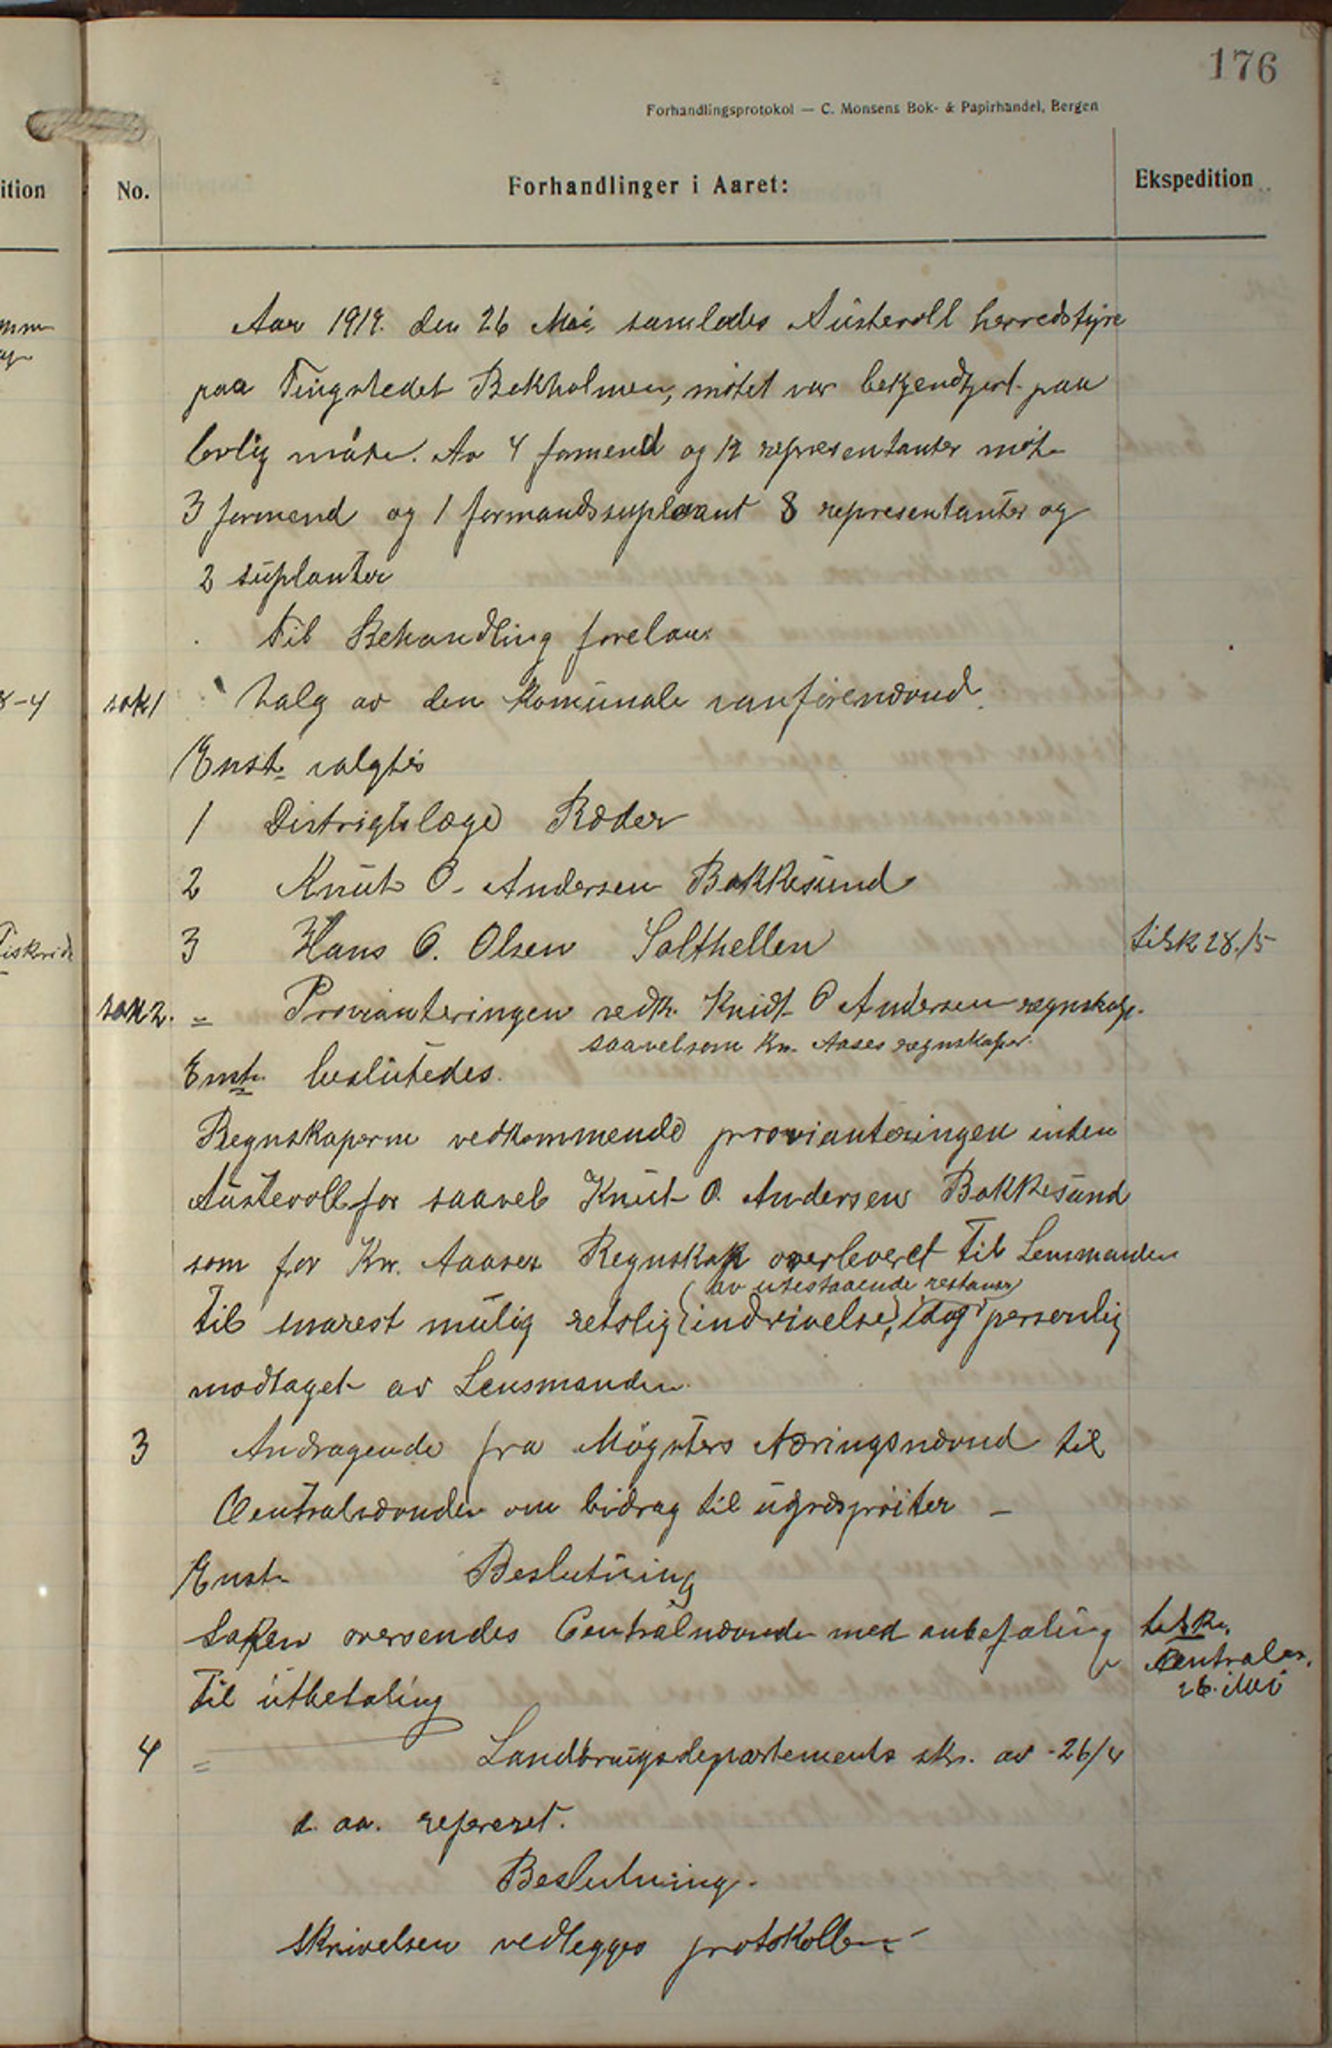 176
Forhandlingsprotokol — C. Monsens Bok- & Papirhandel, Bergen
ition
No.
Forhandlinger i Aaret:
Ekspedition
Aar 1919. den 26 Mai samledes Austevoll herredstyre
paa Tingstedet Bekholmen, mötet var bekjendtgjort paa
lovlig måte. Av 4 formend og 12 representanter möt
3 formend og 1 formandssupleant 8 representanter og
2 suplanter
Til Behandling forelaa:
8-4
sak 1 Valg av den komunale
Enst. valgtes
1 Distrigtslæge Ræder
2 Knut O. Andersen Bakkesund
3 Hans O. Olsen Salthellen
tilsk 28./5
sak 2. " Provianteringen vedk. Knut O Andersen regnskap.
saavelsom Kr. Aases regnskaper.
Enst. beslutedes.
Regnskaperne vedkommende provianteringen inden
Austevoll for saavel Knut O. Andersen Bakkesund
som for Kr. Aases Regnskap overleveret til Lensmanden
av utestaaende restancer
til snarest mulig retslig (indrivelse,) idag personlig
modtaget av Lensmanden.
3 Andragende fra Møgsters Næringsnævnd til
Centralnævnden om bidrag til ugrassprøiter –
Enst. Beslutning
Saken oversendes Centralnævnden med anbefaling
til utbetaling
tilskr.
Centralen.
26. Mai
4 = Landbrugsdepartements skr. av -26/4
d. aa. refereret.
Beslutning.
Skrivelsen vedlegges protokollen